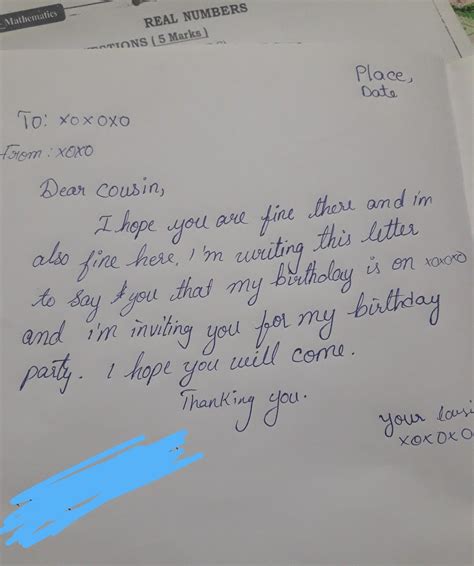 Mathematics
REAL NUMBERS
QUESTIONS [5 Marks]
Place,
Date
To: xoxoxo
From: xoxo
Dear cousin,
I hope you are fine there and i'm
also fine here, I'm writing this letter
to say you that my birthday is on xoxoxo
and i'm inviting you for my birthday
party. I hope you will come.
Thanking you.
your cousi
xoxoxo